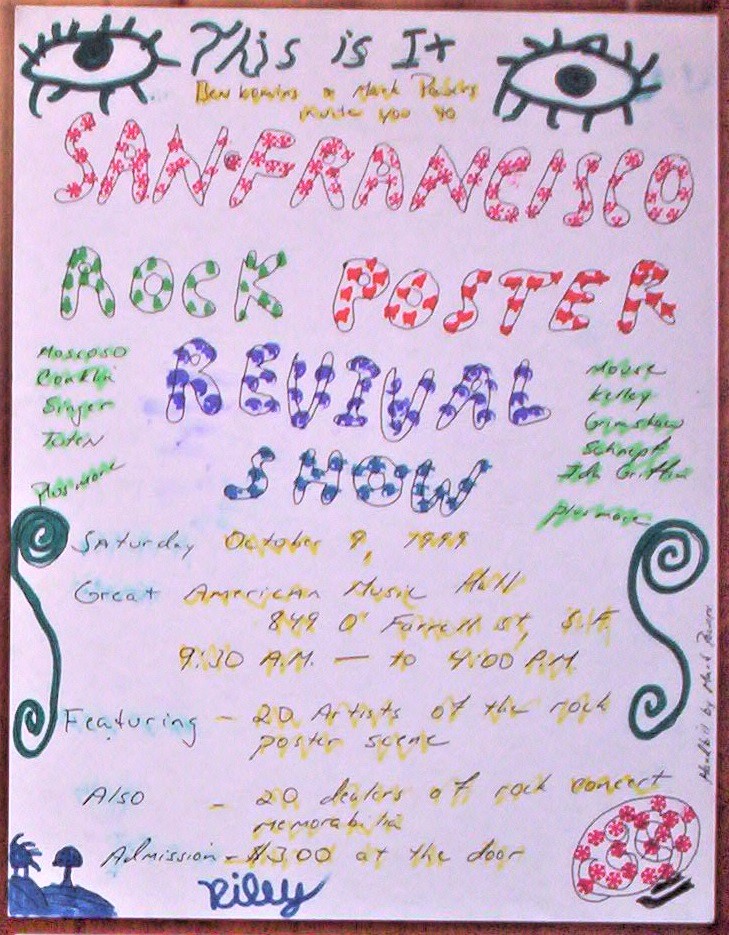 This is It
Ben & Mark Powers
invite you to
SAN FRANCISCO
ROCK POSTER
REVIVAL
SHOW
Moscoso
Conklin
Singer
Tuten
Plus more
Mouse
Kelley
Grimshaw
Schnepf
Ida Griffin
plus more
Saturday October 9, 1999
Great American Music Hall
849 O'Farrell st, S.F.
9:30 A.M. — to 4:00 P.M.
Featuring - 20 Artists of the rock
poster scene
Also - 20 dealers of rock concert
memorabilia
Admission - $3.00 at the door
Riley
Handbill by Mark Powers